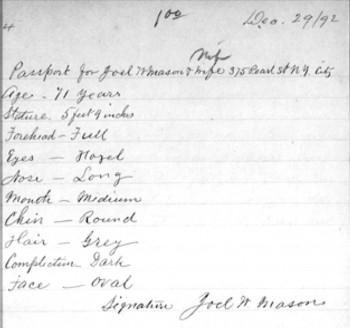 1 00
Dec. 29/92
4
Wife
Passport for Joel W Mason & Wife 375 Pearl St N.Y. City
Age - 71 Years
Stature 5 feet 9 inches
Forehead - Full
Eyes - Hazel
Nose - Long
Mouth - Medium
Chin - Round
Hair - Grey
Complection Dark
Face - Oval
Signature Joel W Mason